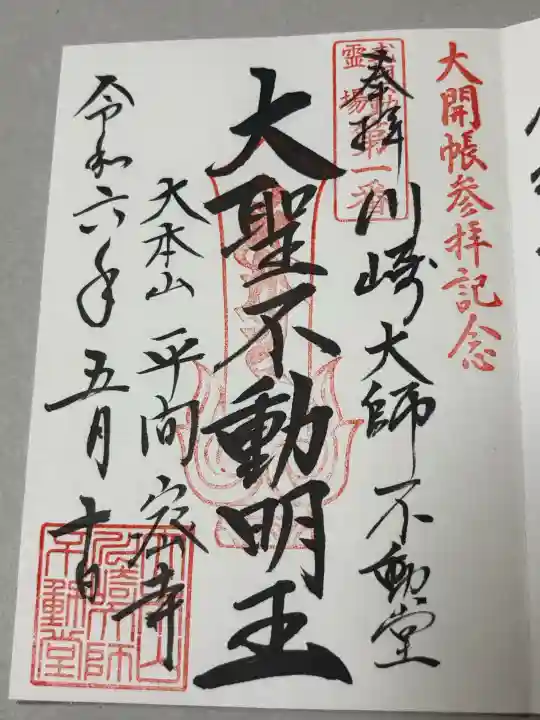 大開帳参拝記念
奉拝 川崎大師不動堂
霊場第一番
大聖不動明王
大本山 平間寺
令和六年五月十日